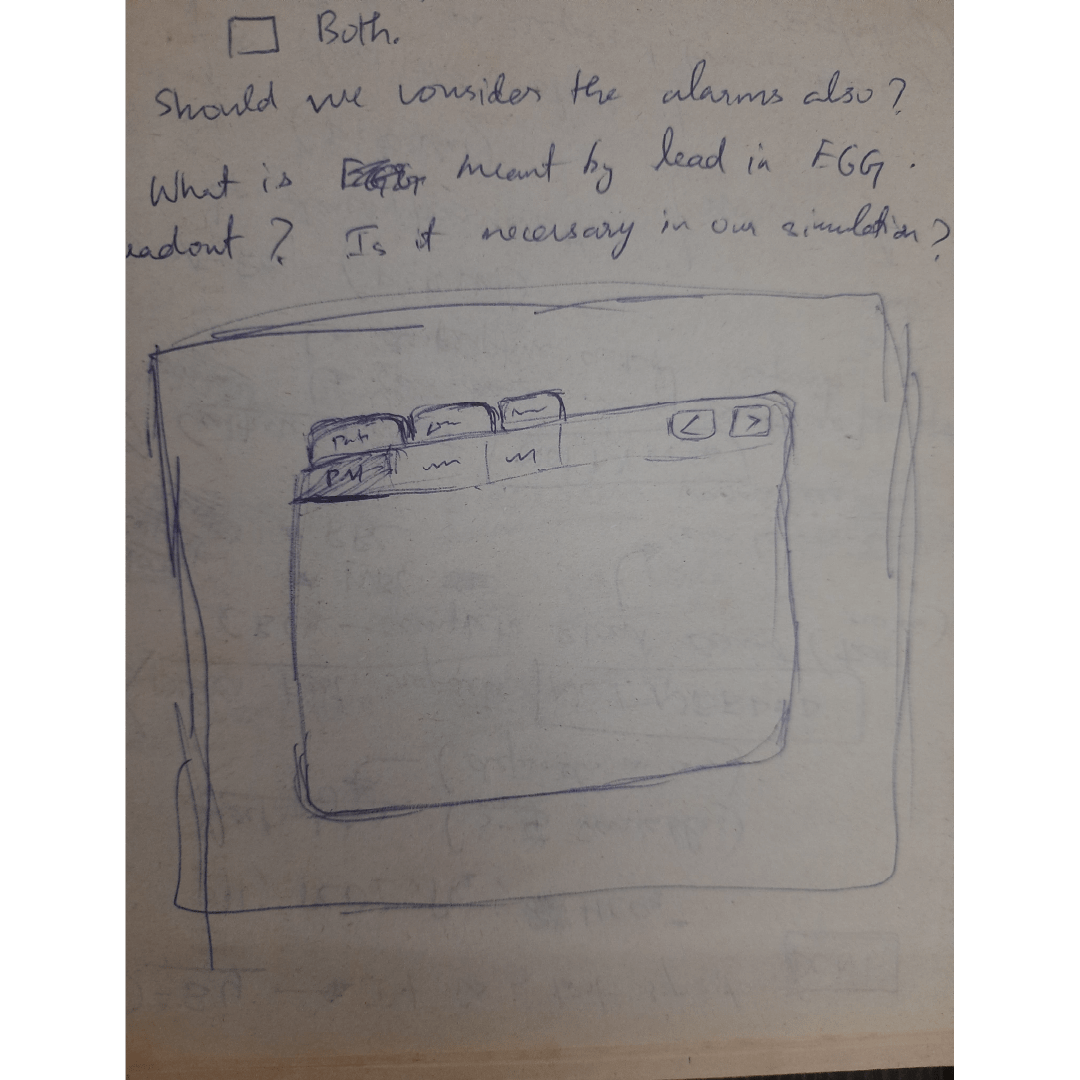 Both.
Should we consider the alarms also?
What is meant by lead in EGG.
readout? Is it necessary in our simulation?
< >